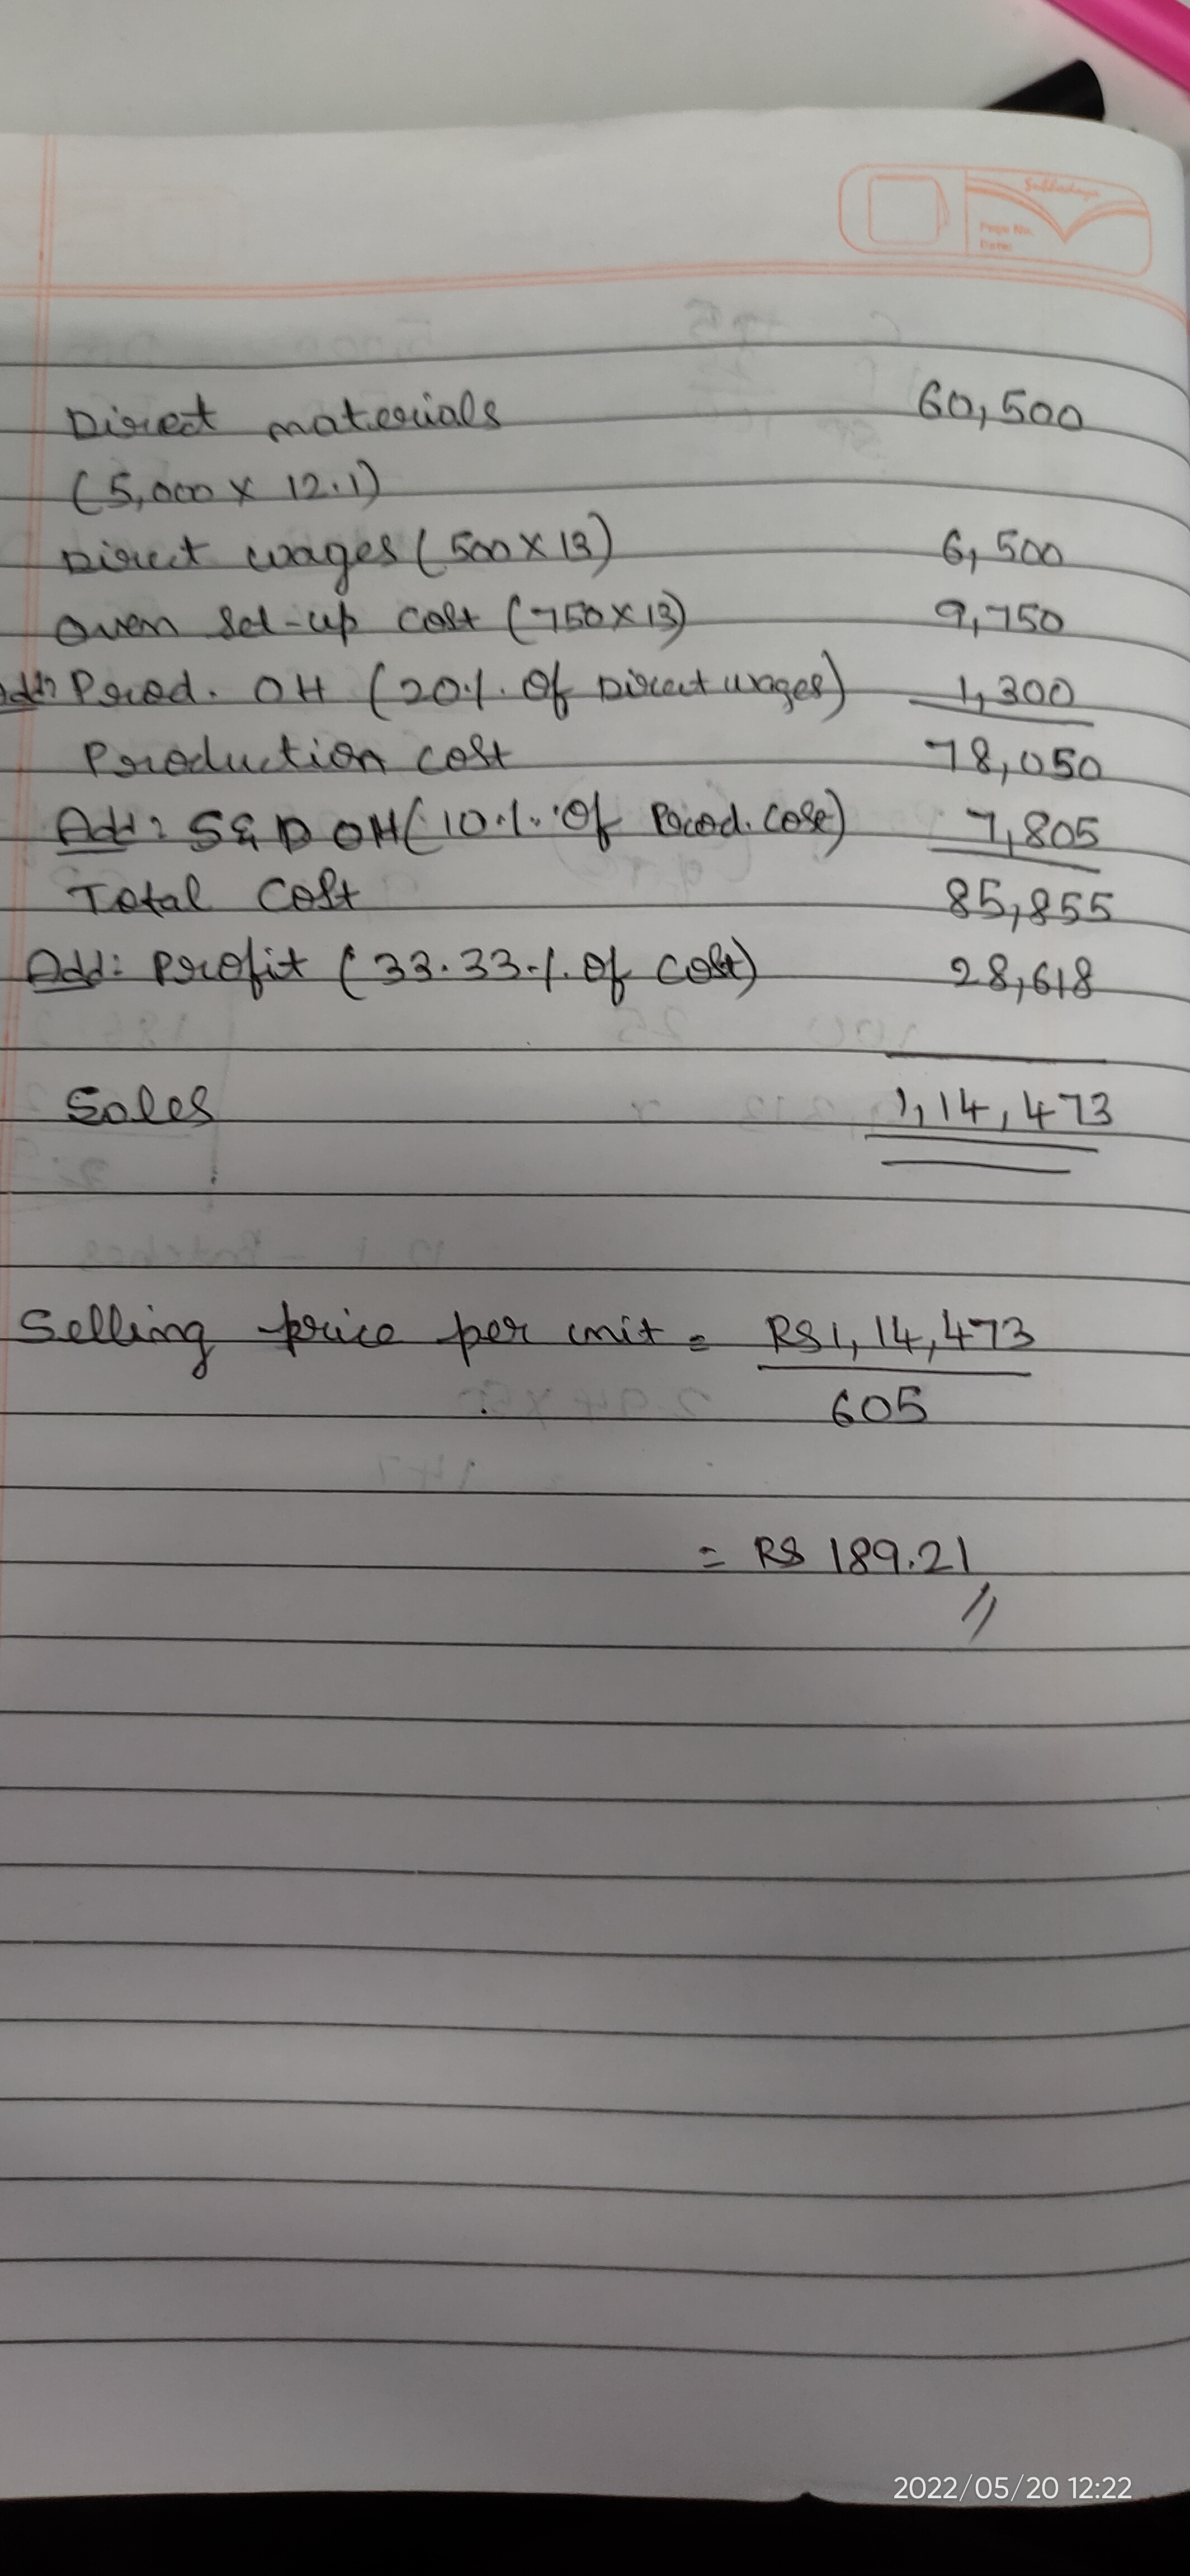 Sabhadaya
Page No.
Date
Direct materials 60,500
(5,000 x 12.1)
Direct wages (500 x 13) 6,500
Oven Set-up cost (750x13) 9,750
Add: Prod. OH (20%. Of Direct wages) 1,300
Production cost 78,050
Add: S&D OH (10%. Of Prod. Cost) 7,805
Total Cost 85,855
Add: Profit (33.33%. Of Cost) 28,618
Sales 1,14,473
Selling price per unit = RS 1,14,473
605
= RS 189.21
2022/05/20 12:22